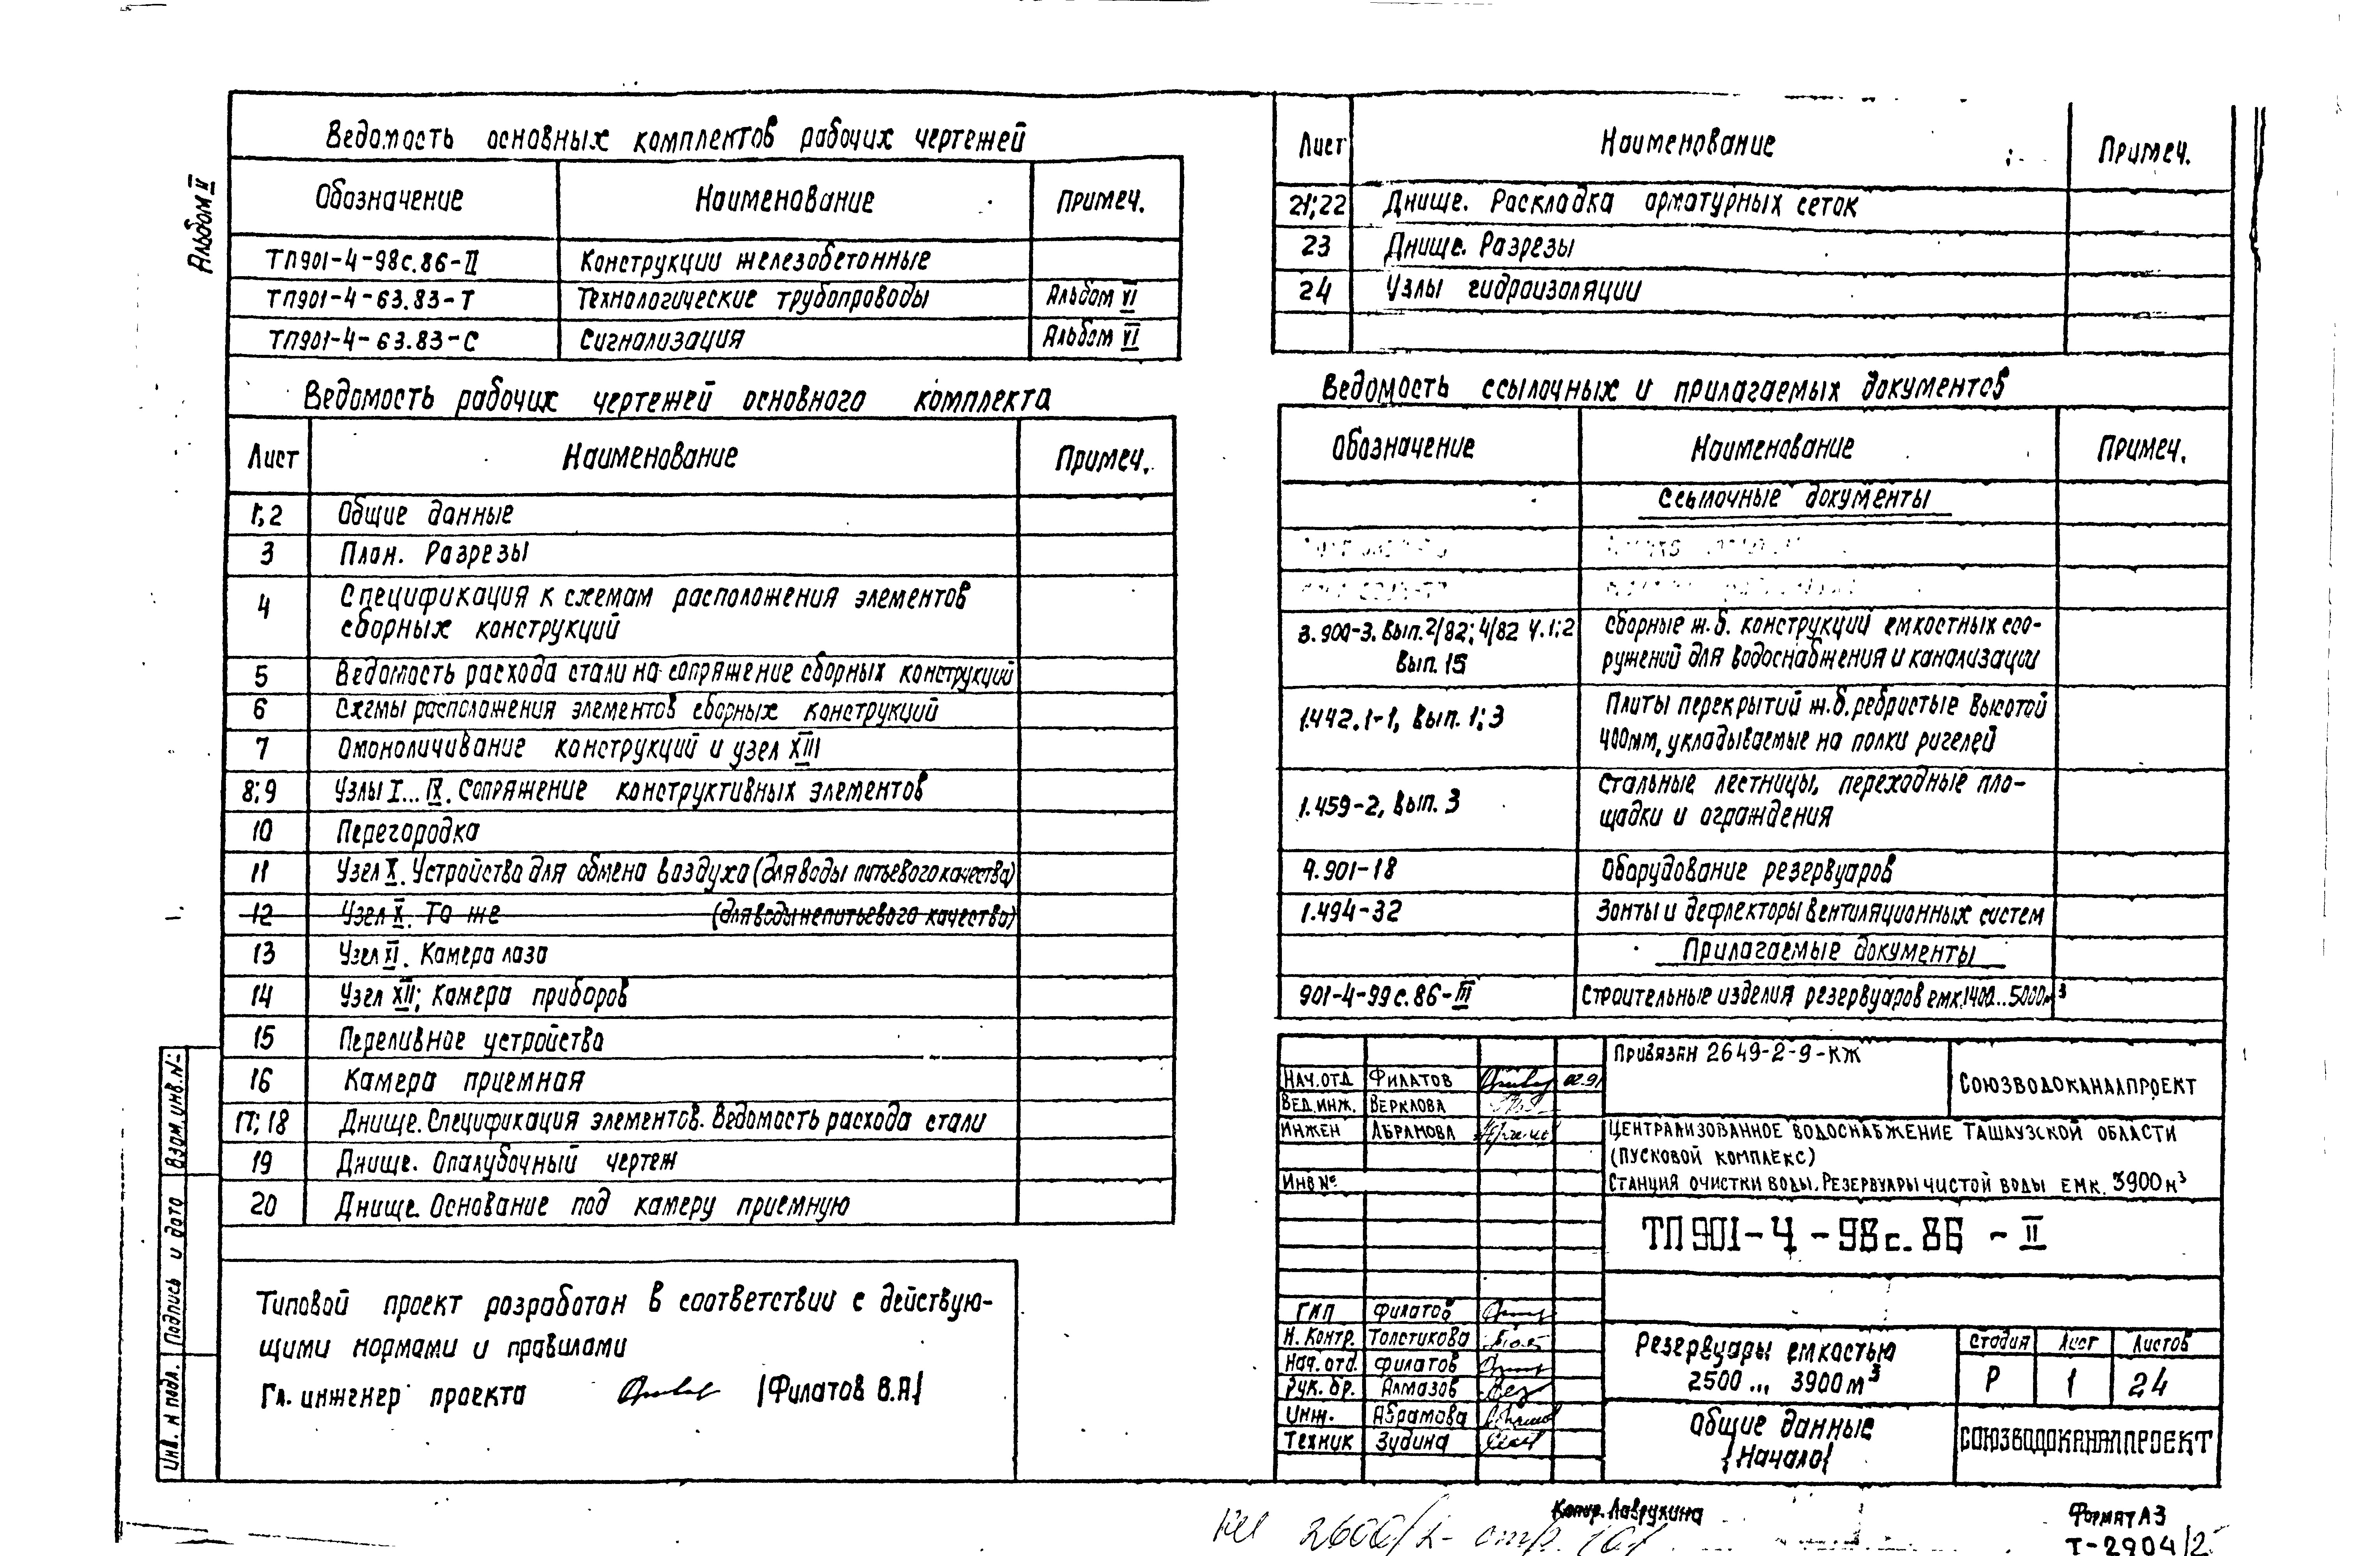 Альбом II
Ведомость основных комплектов рабочих чертежей
Обозначение Наименование Примеч.
ТП901-4-98с.86-II Конструкции железобетонные
ТП901-4-63.83-Т Технологические трубопроводы Альбом VI
ТП901-4-63.83-С Сигнализация Альбом VI
Ведомость рабочих чертежей основного комплекта
Лист Наименование Примеч.
1,2 Общие данные
3 План. Разрезы
4 Спецификация к схемам расположения элементов
сборных конструкций
5 Ведомость расхода стали на сопряжение сборных конструкций
6 Схемы расположения элементов сборных конструкций
7 Омоноличивание конструкций и узел XIII
8;9 Узлы I... IX. Сопряжение конструктивных элементов
10 Перегородка
11 Узел X. Устройства для обмена воздуха (для воды питьевого качества)
12 Узел X. То же (для воды непитьевого качества)
13 Узел XI. Камера лаза
14 Узел XII; Камера приборов
15 Переливное устройство
16 Камера приемная
17; 18 Днище. Спецификация элементов. Ведомость расхода стали
19 Днище. Опалубочный чертеж
20 Днище. Основание под камеру приемную
Типовой проект разработан в соответствии с действую-
щими нормами и правилами
Гл. инженер проекта (Филатов В.А)
Взам. инв. №
Подпись и дата
Инв. № подл.
Лист Наименование Примеч.
21;22 Днище. Раскладка арматурных сеток
23 Днище. Разрезы
24 Узлы гидроизоляции
Ведомость ссылочных и прилагаемых документов
Обозначение Наименование Примеч.
Ссылочные документы
3.900-3. Вып.2/82; 4/82 ч.1;2 Сборные ж.б. конструкции емкостных соо-
Вып. 15 ружений для водоснабжения и канализации
1.442.1-1, Вып. 1; 3 Плиты перекрытий ж.б. ребристые высотой
400мм, укладываемые на полки ригелей
1.459-2, Вып. 3 Стальные лестницы, переходные пло-
щадки и ограждения
4.901-18 Оборудование резервуаров
1.494-32 Зонты и дефлекторы вентиляционных систем
Прилагаемые документы
901-4-99с.86-III Строительные изделия резервуаров емк.1400...5000м³
Привязан 2649-2-9-КЖ
Союзводоканалпроект
Нач.отд Филатов 02.91
Вед.инж. Верклова
Инжен Абрамова
Инв №
Централизованное водоснабжение Ташаузской области
(Пусковой комплекс)
Станция очистки воды. Резервуары чистой воды емк. 3900м³
ТП901-4-98с.86-II
ГИП Филатов
Н. Контр. Толстикова
Нач. отд. Филатов
Рук. бр. Алмазов
Инж. Абрамова
Техник Зудина
Резервуары емкостью
2500 ... 3900м³
Стадия Лист Листов
Р 1 24
Общие данные
(Начало)
Союзводоканалпроект
Копир. Лаврухина
Формат А3
Т-2904/2